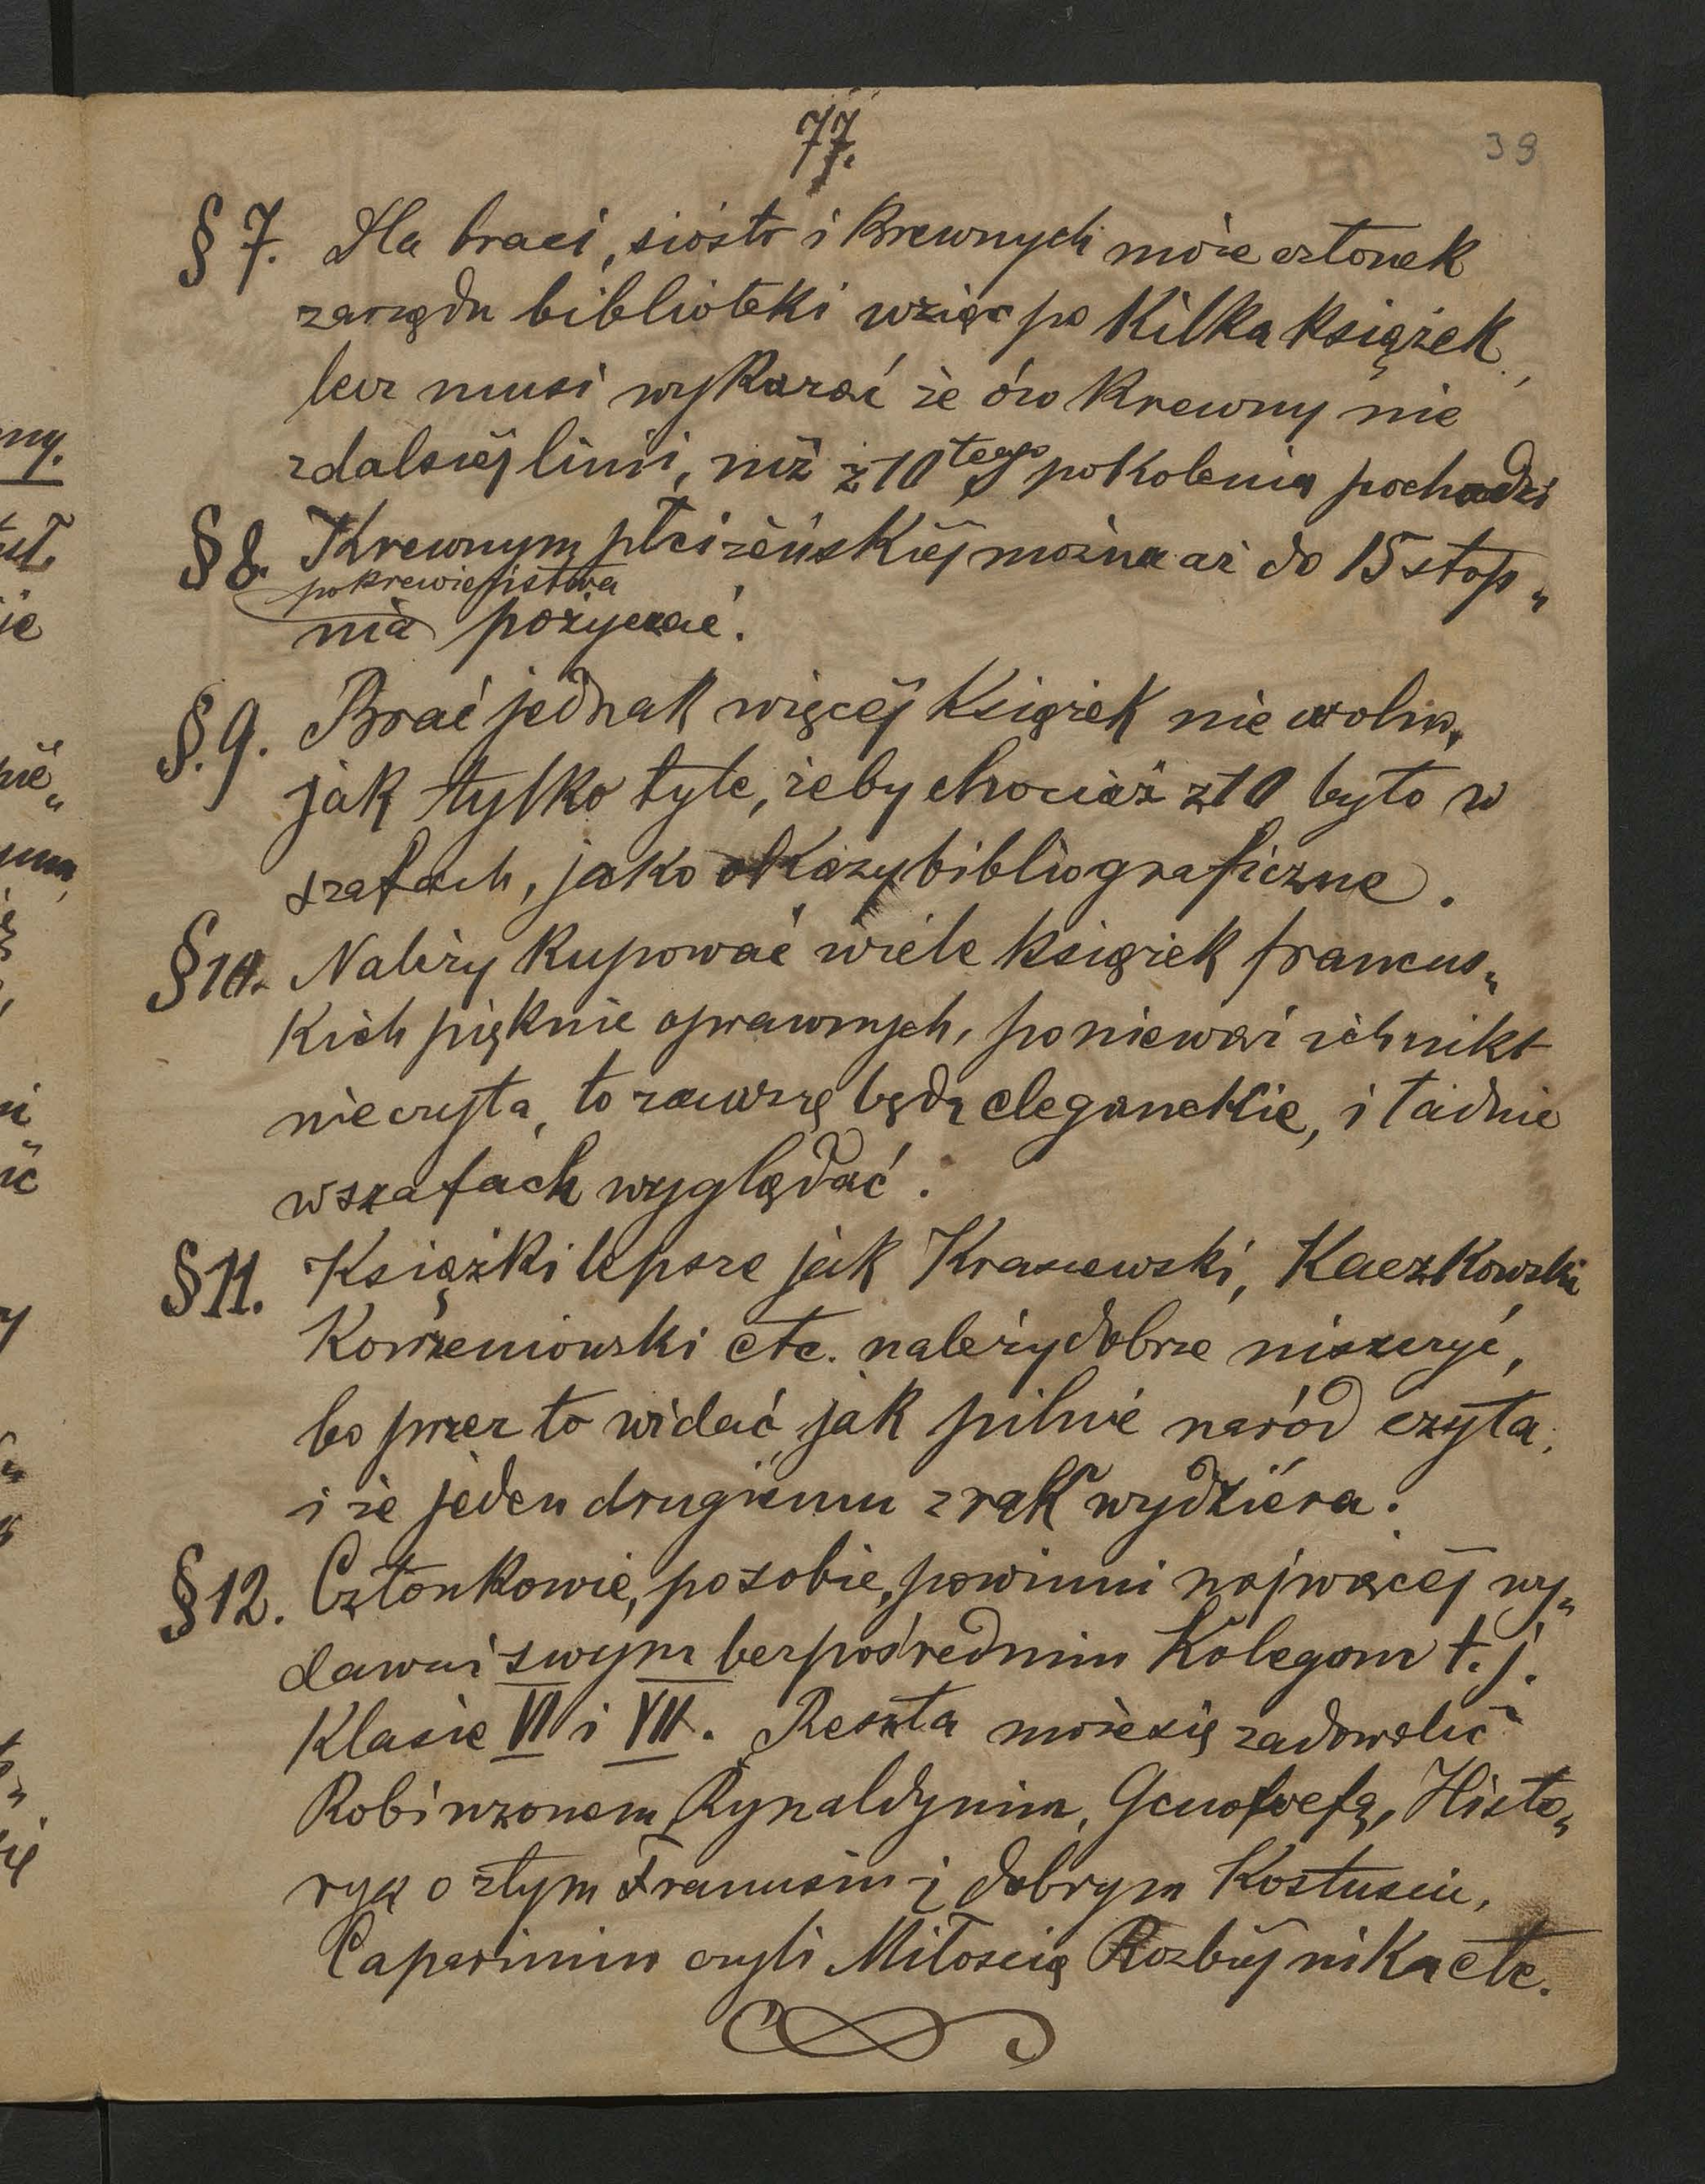 77.
39
§ 7. Dla braci, sióstr i krewnych może członek
zarządu biblioteki wziąść po kilka książek,
lecz musi wykazać że ów krewny nie
z dalszéj linii, niż z 10tego pokolenia pochodzi
§ 8. Krewnym płci żeńskiéj można aż do 15 stop„
pokrewieństwa
nia pożyczać.
§. 9. Brać jednak więcéj książek nie wolno,
jak tylko tyle, żeby chociaż z 10 było w
szafach, jako okazy bibliograficzne.
§ 10. Należy kupować wiele książek francus„
kich pięknie oprawnych, ponieważ ich nikt
nie czyta, to zawszę będą eleganckie, i ładnie
w szafach wyglądać.
§ 11. Książki lepsze jak Kraszewski, Kaczkowski
Korzeniowski etc. należy dobrze niszczyć,
bo przez to widać, jak pilnie naród czyta,
i że jeden drugiemu z rąk wydziéra.
§ 12. Członkowie, po sobie, powinni najwięcéj wy„
dawać swym bezpośrednim Kolegom t. j.
Klasie VI i VII. Reszta może się zadowolić
Robinzonem, Rynaldynim, Genofwefą, Histo„
ryą o złym Franusiu i dobrym Kostusiu,
Caparinim czyli Miłością Rozbójnika etc.